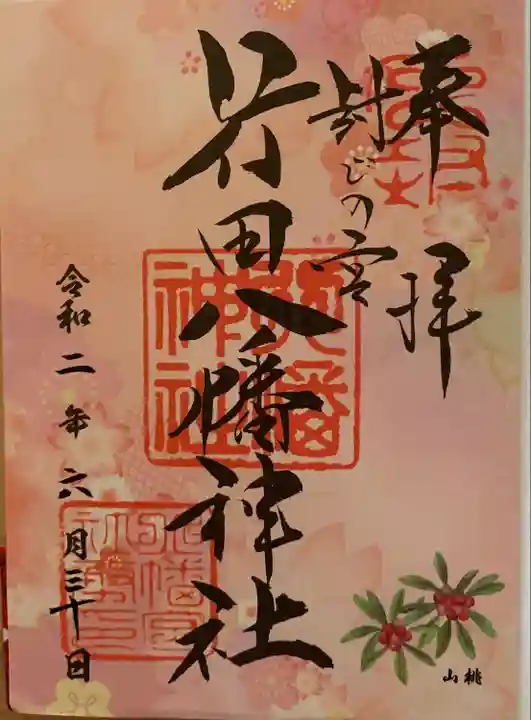 奉拝
封じの宮
田八幡神社
令和二年六月三十日
山桃
八幡
神社